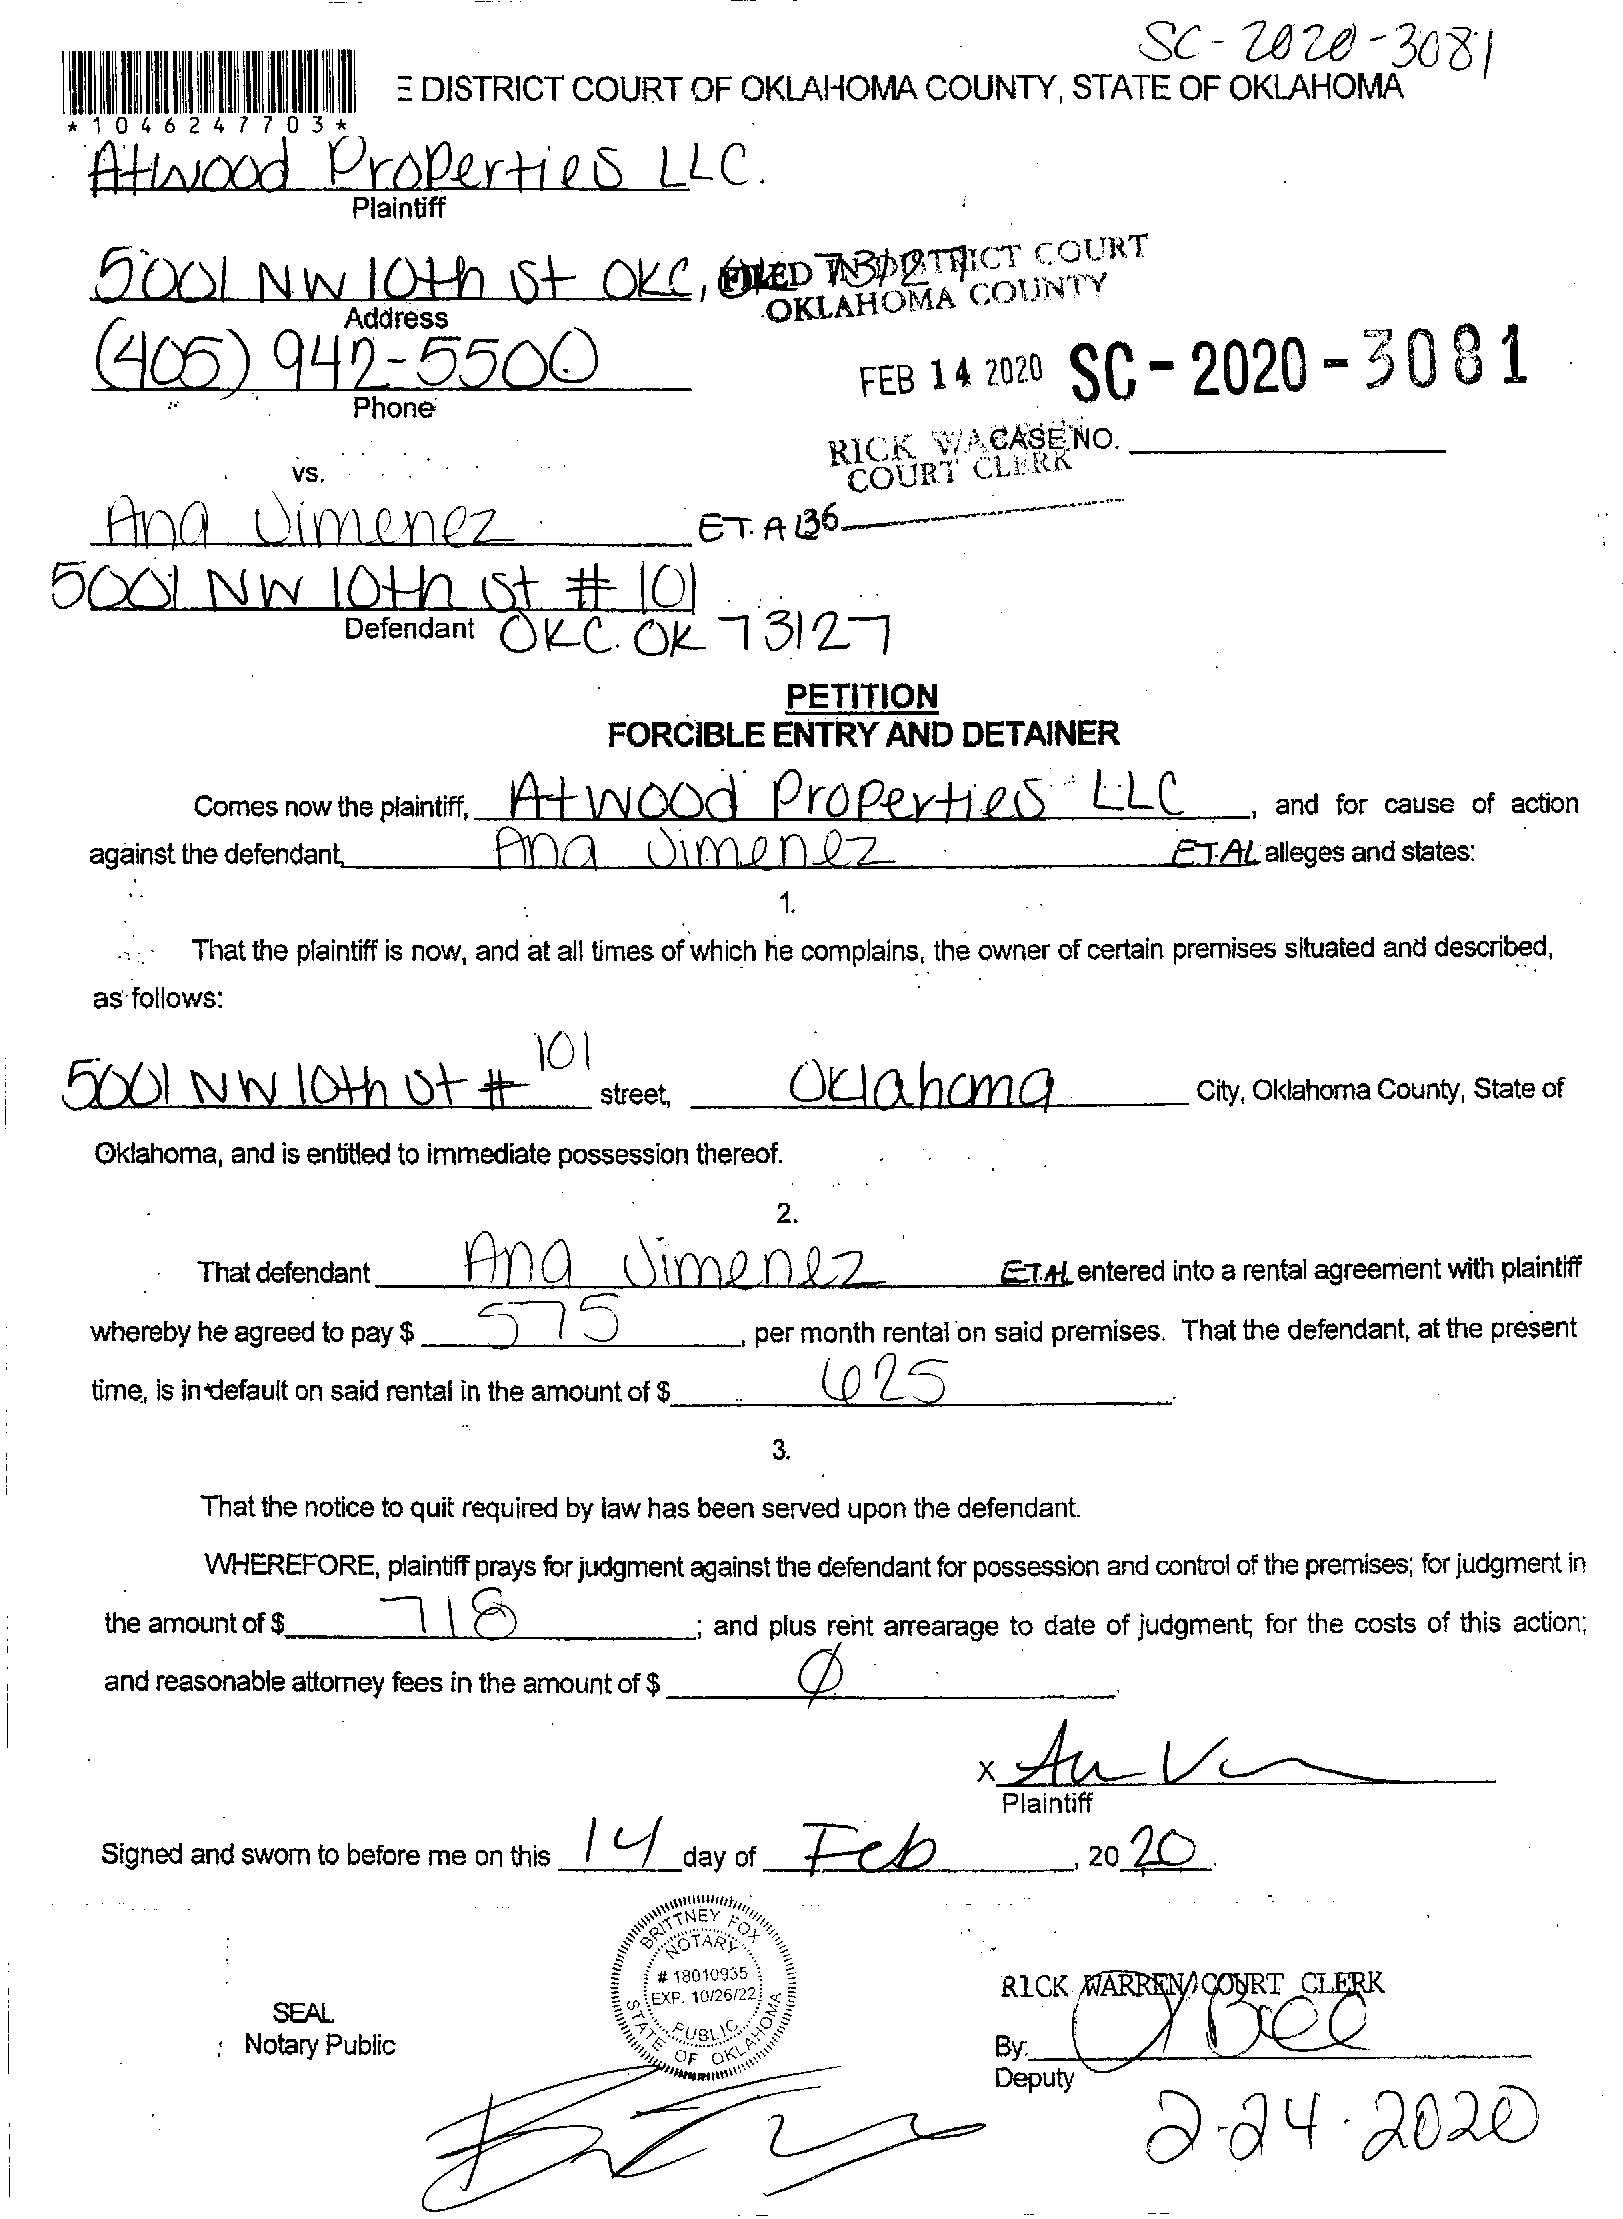 SC-2020-3081
E DISTRICT COURT OF OKLAHOMA COUNTY, STATE OF OKLAHOMA
*1046247703*
Atwood Properties LLC.
Plaintiff
5001 NW 10th St OKC, OK 73127
FILED IN DISTRICT COURT
OKLAHOMA COUNTY
Address
(405) 942-5500
FEB 14 2020 SC-2020-3081
Phone
RICK WA CASE NO.
COURT CLERK
vs.
Ana Jimenez ET. AL 36
5001 NW 10th St # 101
Defendant OKC. OK 73127
PETITION
FORCIBLE ENTRY AND DETAINER
Comes now the plaintiff, Atwood Properties LLC, and for cause of action
against the defendant, Ana Jimenez ET.AL alleges and states:
1.
That the plaintiff is now, and at all times of which he complains, the owner of certain premises situated and described,
as follows:
5001 NW 10th St # 101 street, Oklahoma City, Oklahoma County, State of
Oklahoma, and is entitled to immediate possession thereof.
2.
That defendant Ana Jimenez ET.AL entered into a rental agreement with plaintiff
whereby he agreed to pay $ 575, per month rental on said premises. That the defendant, at the present
time, is in default on said rental in the amount of $ 625.
3.
That the notice to quit required by law has been served upon the defendant.
WHEREFORE, plaintiff prays for judgment against the defendant for possession and control of the premises; for judgment in
the amount of $ 718; and plus rent arrearage to date of judgment; for the costs of this action;
and reasonable attorney fees in the amount of $ Ø.
X
Plaintiff
Signed and sworn to before me on this 14 day of Feb, 2020.
BRITTNEY FOX
NOTARY
# 18010935
EXP. 10/26/22
PUBLIC
STATE OF OKLAHOMA
SEAL
Notary Public
RICK WARREN COURT CLERK
By:
Deputy
2-24-2020